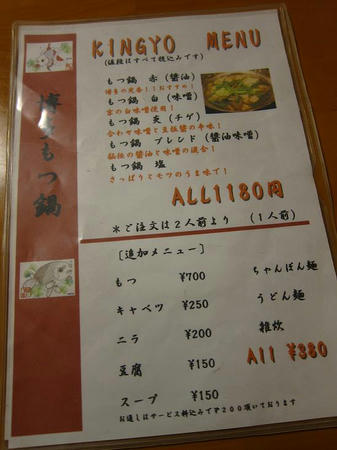 KINGYO MENU
(値段はすべて税込みです)
博多もつ鍋
もつ鍋 赤 (醤油)
博多の定番!!おすすめ!
もつ鍋 白 (味噌)
京の白味噌使用!
もつ鍋 炎 (チゲ)
合わせ味噌と豆板醤の辛味!
もつ鍋 ブレンド (醤油味噌)
秘伝の醤油と味噌の混合!
もつ鍋 塩
さっぱりとモツのうま味で!
ALL1180円
*ご注文は2人前より (1人前)
[追加メニュー]
もつ ¥700
キャベツ ¥250
ニラ ¥200
豆腐 ¥150
スープ ¥150
ちゃんぽん麺
うどん麺
雑炊
All ¥380
お通しはサービス料込みで¥200頂いております